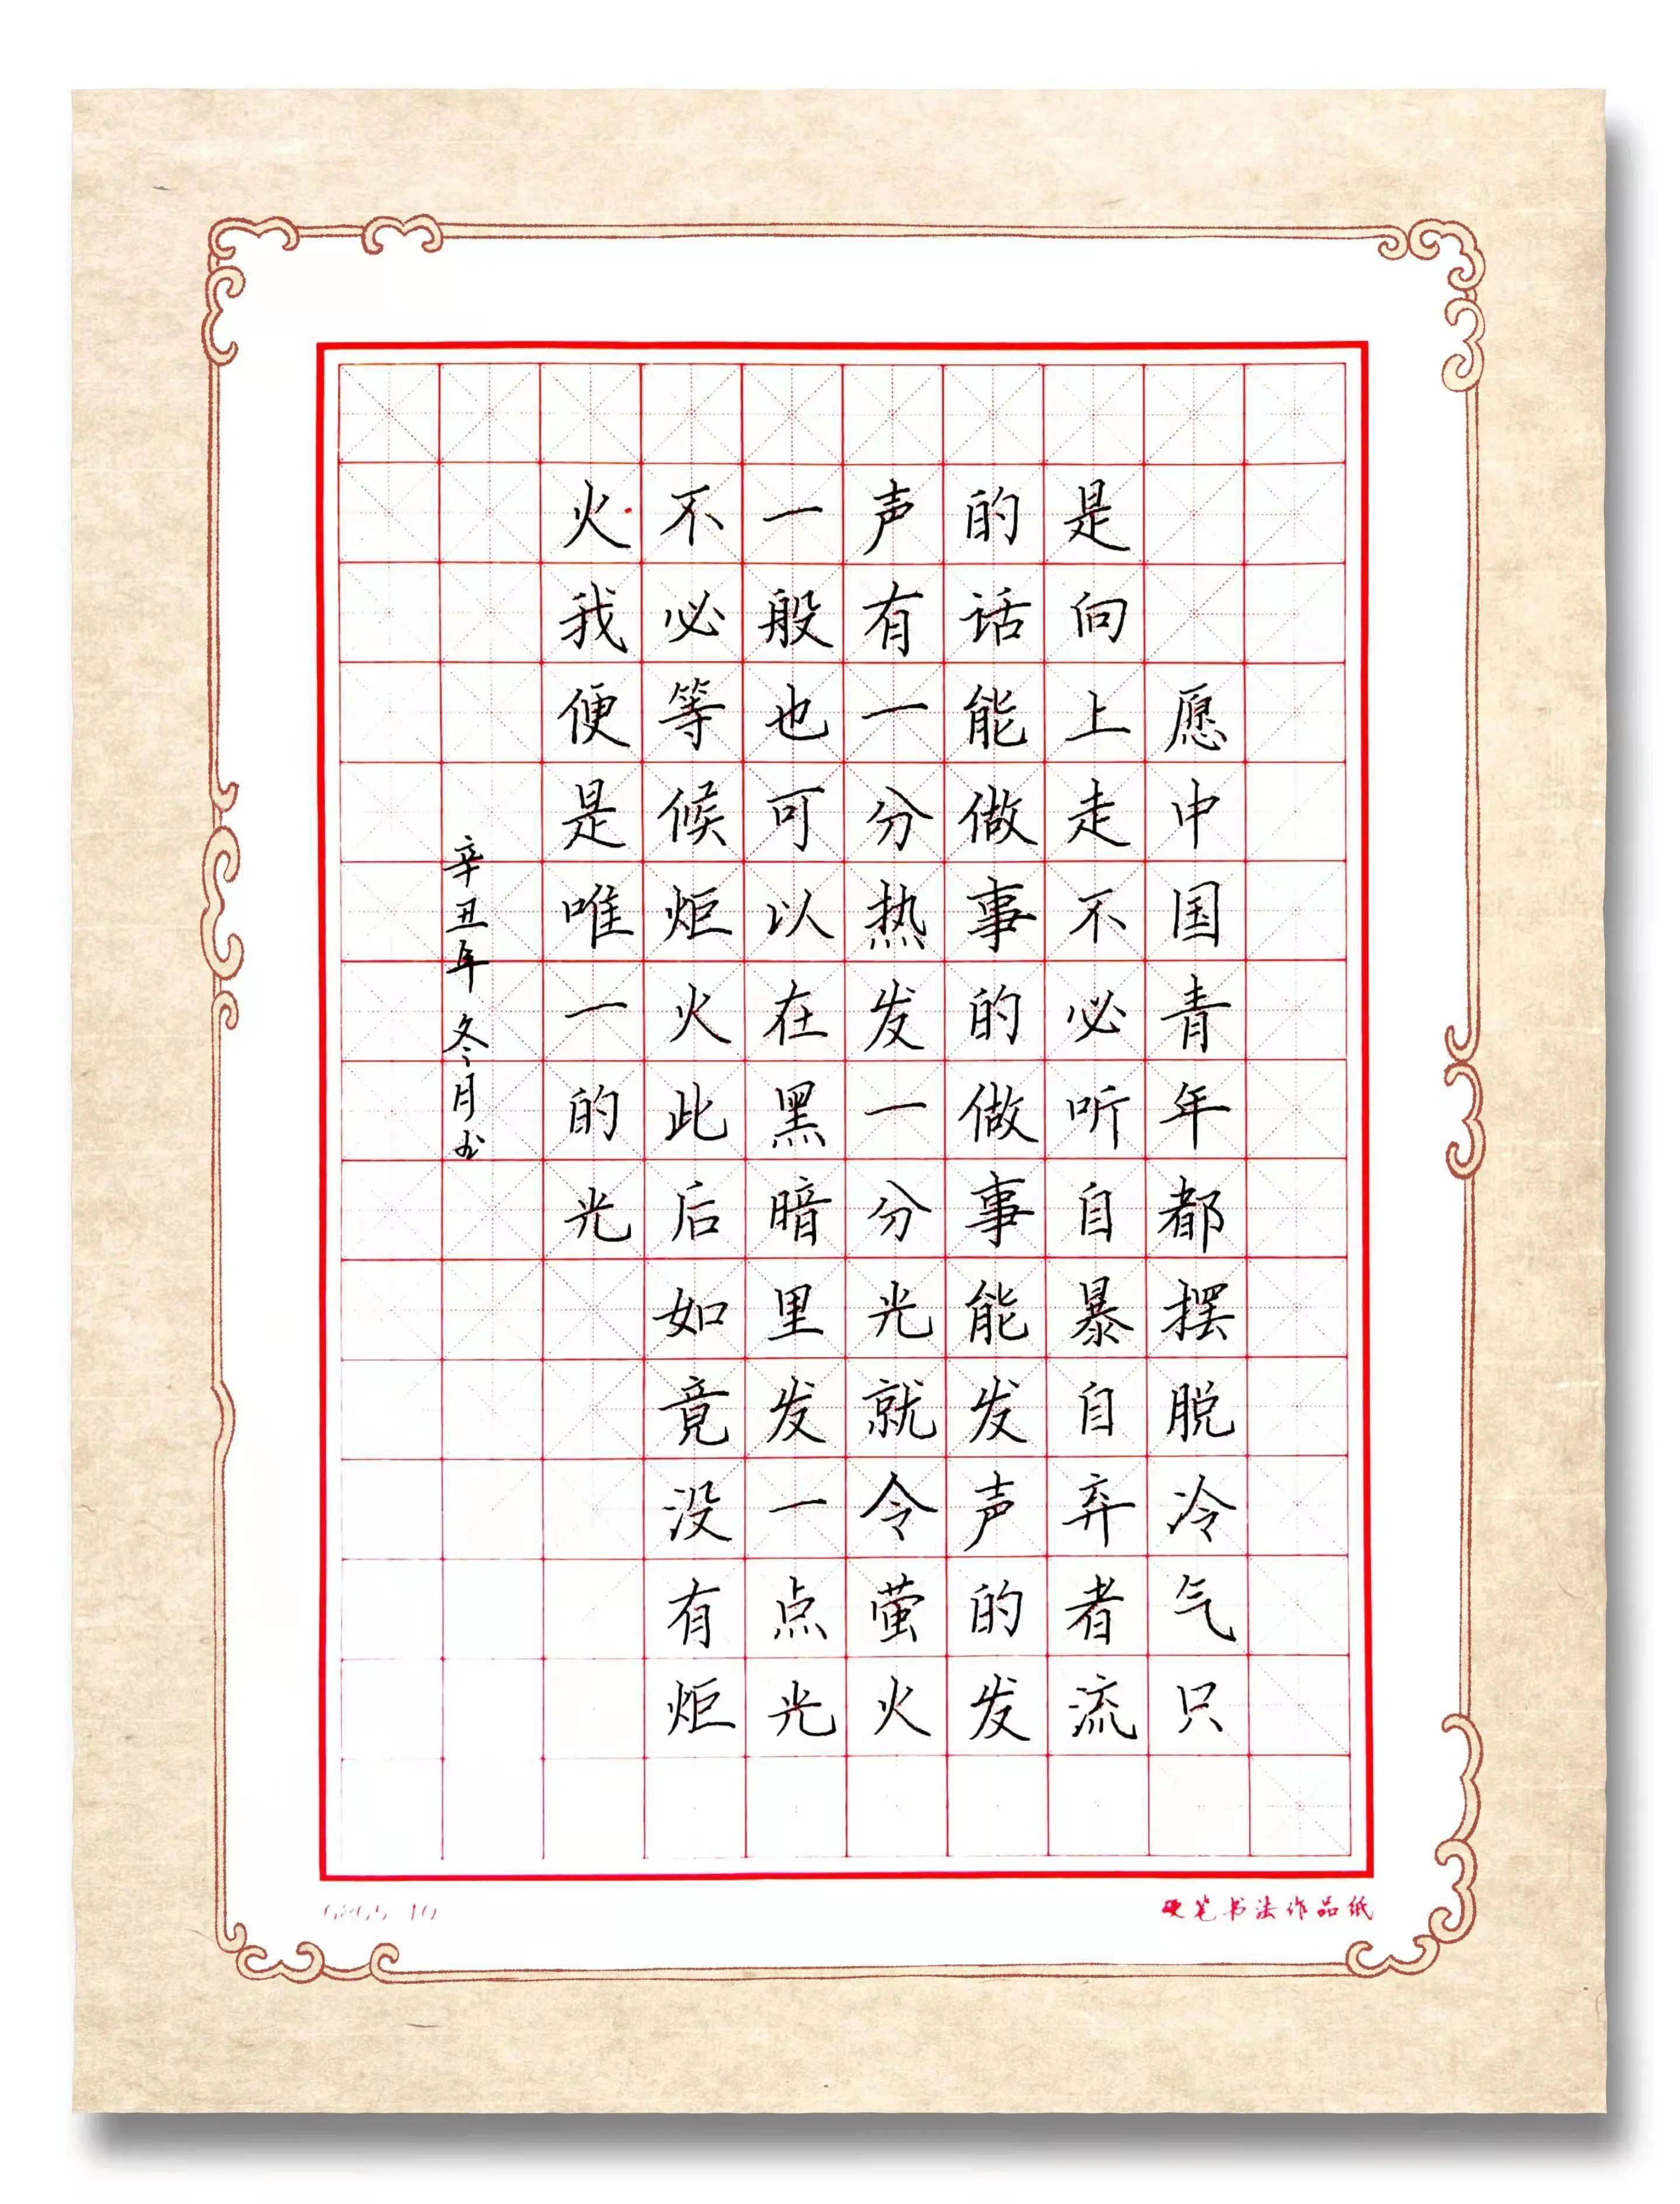 愿中国青年都摆脱冷气只
是向上走不必听自暴自弃者流
的话能做事的做事能发声的发
声有一分热发一分光就令萤火
一般也可以在黑暗里发一点光
不必等候炬火此后如竟没有炬
火我便是唯一的光
辛丑年冬月书
硬笔书法作品纸